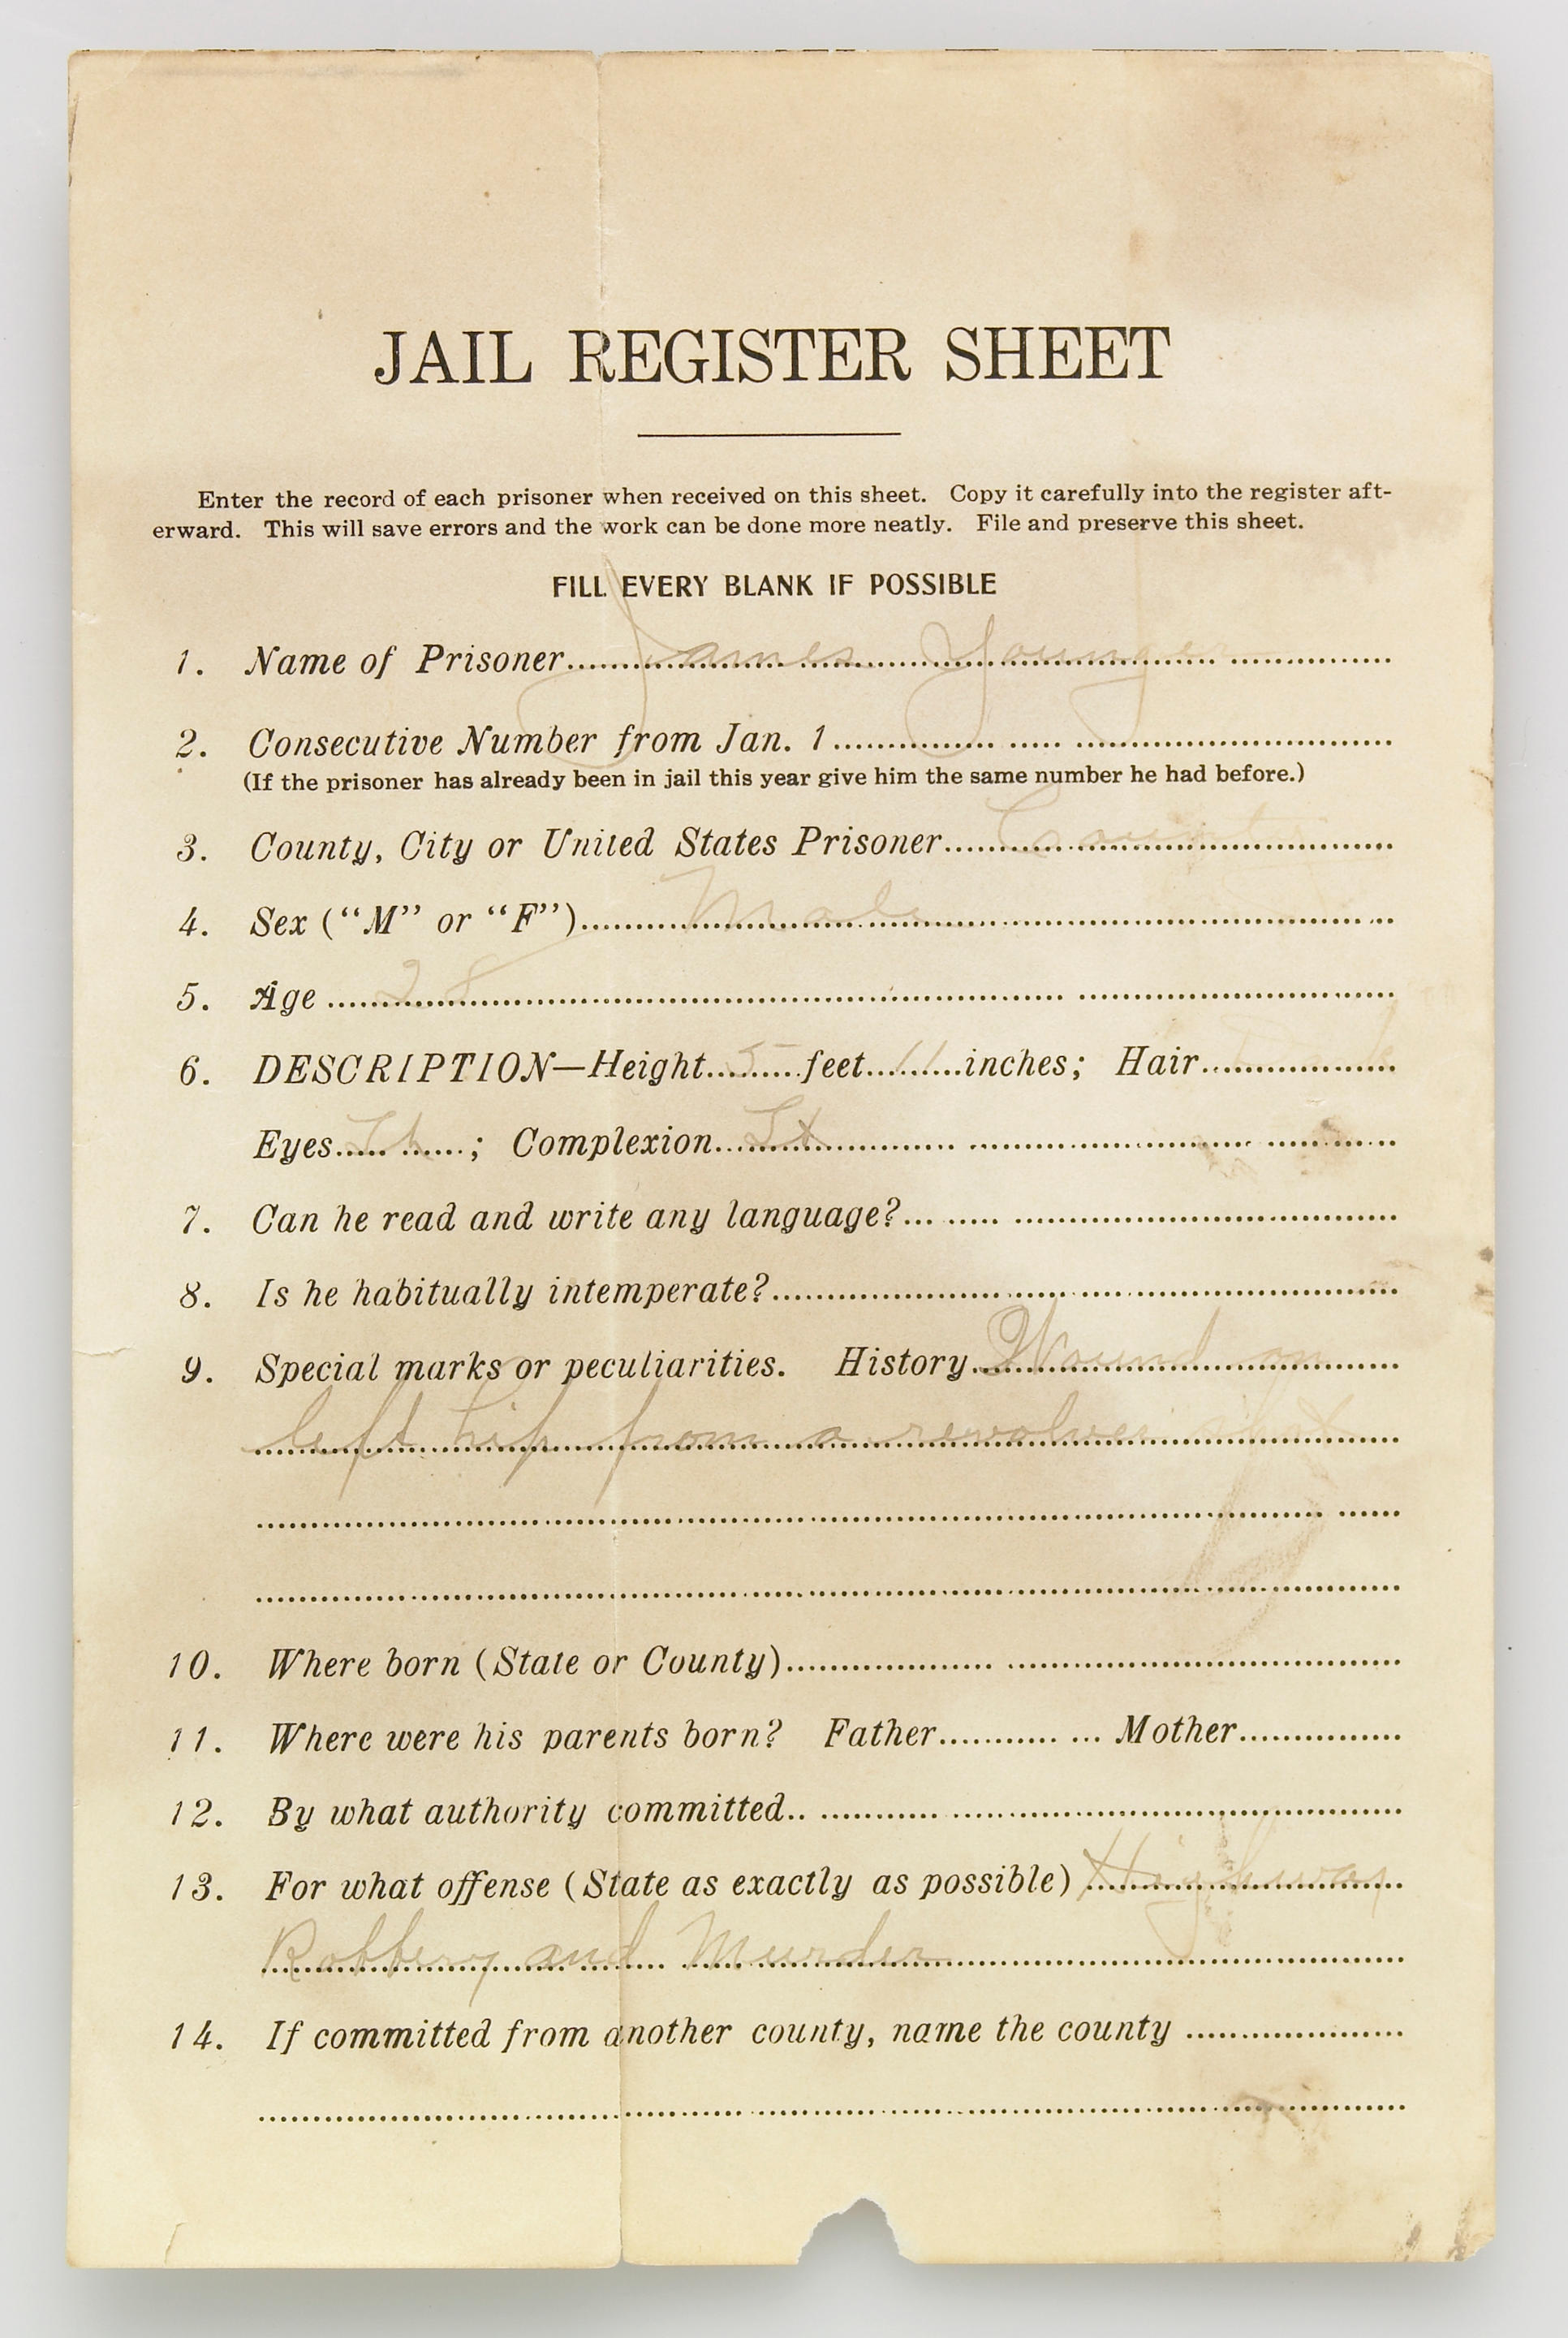 JAIL REGISTER SHEET
Enter the record of each prisoner when received on this sheet. Copy it carefully into the register aft-
erward. This will save errors and the work can be done more neatly. File and preserve this sheet.
FILL EVERY BLANK IF POSSIBLE
1. Name of Prisoner James Younger
2. Consecutive Number from Jan. 1
(If the prisoner has already been in jail this year give him the same number he had before.)
3. County, City or United States Prisoner County
4. Sex ("M" or "F") Male
5. Age 28
6. DESCRIPTION—Height 5 feet 11 inches; Hair
Eyes ; Complexion Lt
7. Can he read and write any language?
8. Is he habitually intemperate?
9. Special marks or peculiarities. History Wound on
left hip from a revolver shot
10. Where born (State or County)
11. Where were his parents born? Father Mother
12. By what authority committed
13. For what offense (State as exactly as possible) Highway
Robbery and Murder
14. If committed from another county, name the county